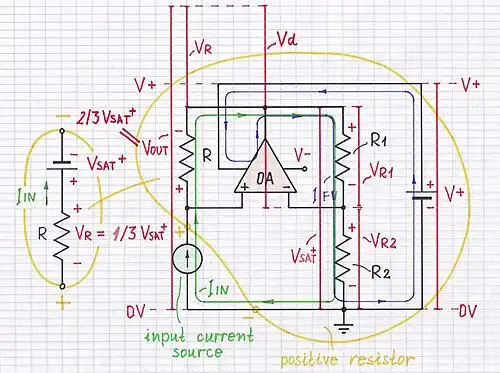 VR
Vd
V+
V+
2/3 VSAT+
VOUT
R
V-
OA
+
-
R1
VR1
IFV
VSAT+
V+
VR2
R2
VSAT+
IIN
R
VR = 1/3 VSAT+
IIN
0V
0V
input current
source
positive resistor